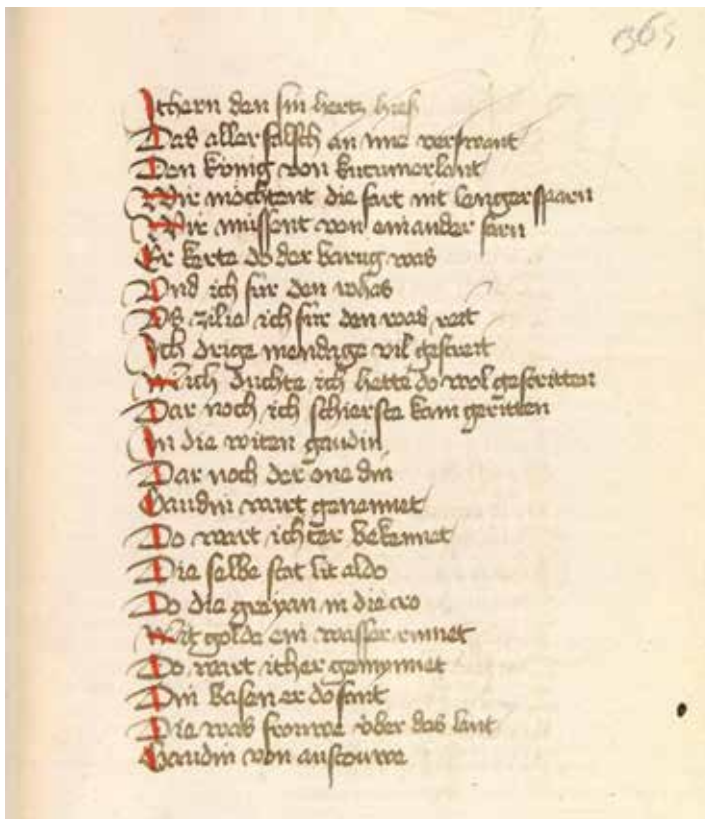 365
Ithern den sin hertz hies
Das aller falsch an ime verswant
Den kónig von kucumerlant
Wir móchtent die fart nit lenger sparn
Wir mússent von einander farn
Er kerte do der barug was
Und ich fúr den rohas
Us zilie ich fúr den rohas reit
Ich drige mendage vil gestreit
Mich duchte ich hette do wol gestritten
Dar noch ich schierste kam geritten
In die witen gandin
Dar noch der ane din
Gandin wart genennet
Do wart ither bekennet
Die selbe stat lit aldo
Do die greyan in die tra
Mit golde ein wasser rinnet
Do wart ither geminnet
Din basen er do fant
Die was frouwe úber das lant
Gandin von anschouwe